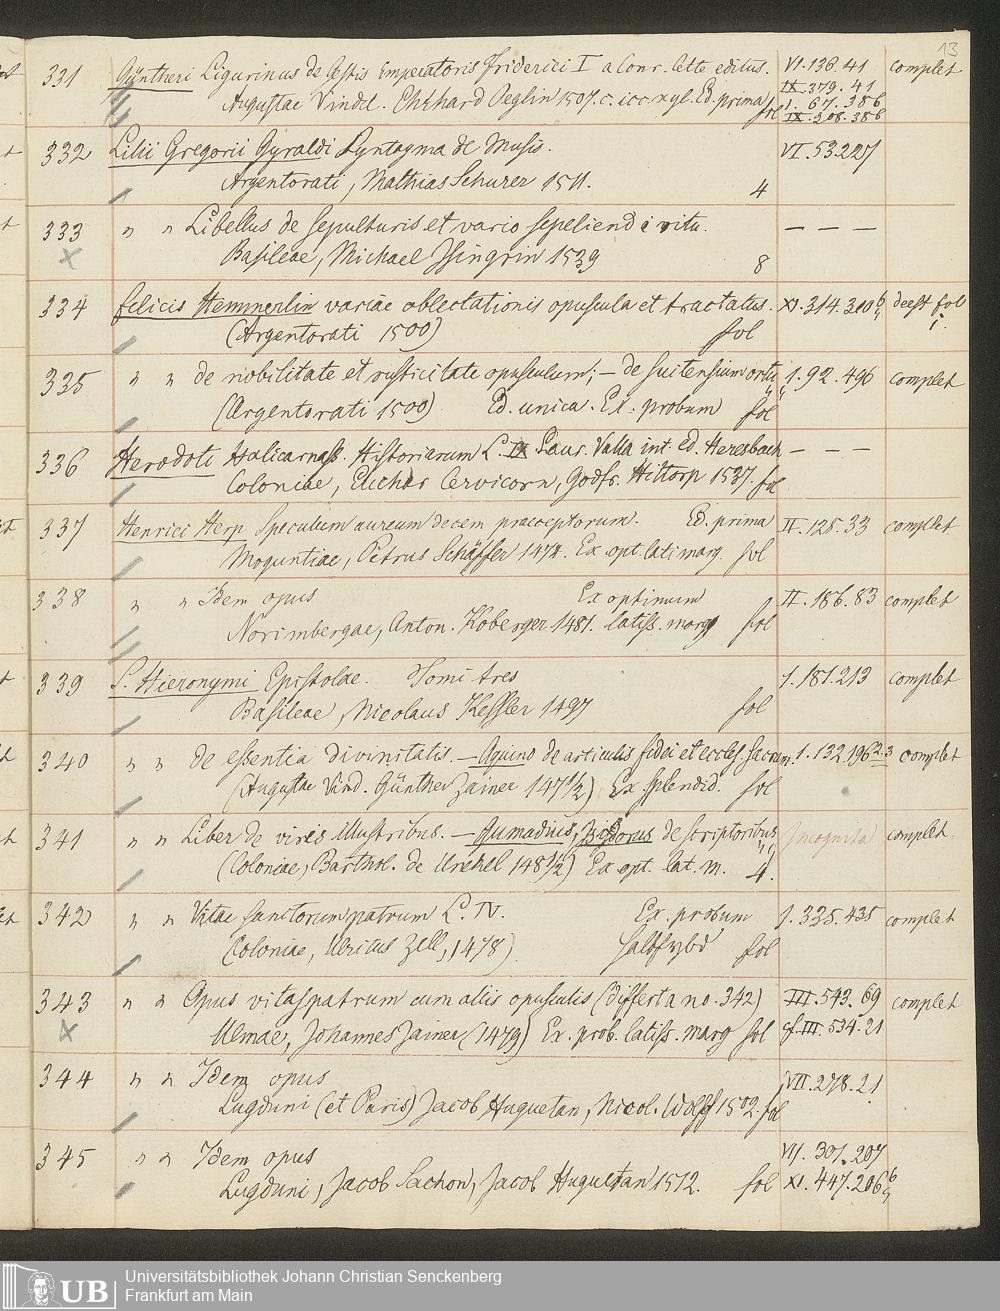 13
331 Güntheri Ligurinus de Gestis Imperatoris Friderici I a Conr. Celte editus. VI.136.41 complet
IX.379.41
Augustae Vindel. Ehrhard Oeglin 1507. c. icc. xyl. Ed. prima fol I.67.386
IX.208.386
332 Lilii Gregorii Gyraldi Syntagma de Musis. VI.53.227
Argentorati, Mathias Schurer 1511. 4
333 " " Libellus de sepulturis et vario sepeliendi ritu. — — —
Basileae, Michael Isingrin 1539 8
334 Felicis Hemmerlin variae oblectationis opuscula et tractatus. XI.314.300 deest fol
(Argentorati 1500) fol 1.
335 " " de nobilitate et rusticitate opusculum; — de Suitensium ortu 1.92.496 complet
(Argentorati 1500) Ed. unica. Ex. probum fol
336 Herodoti Halicarnass. Historiarum L. IX Laur. Valla int. Ed. Heresbach — — —
Coloniae, Euchar Cervicorn, Godfr. Hittorp 1537. fol
337 Henrici Herp Speculum aureum decem praeceptorum. Ed. prima II.125.33 complet
Moguntiae, Petrus Schäffer 1474. Ex. opt. lati marg. fol
338 " " Idem opus Ex optimum II.186.83 complet
Norimbergae, Anton. Koberger 1481. latiss. marg fol
339 S. Hieronymi Epistolae. Tomi tres 1.181.213 complet
Basileae, Nicolaus Kessler 1497 fol
340 " " de essentia divinitatis. — Aquino de articulis fidei et eccles. sacram. 1.132.196 2.3 complet
(Augustae Vind. Günther Zainer 147 1/2) Ex splendid. fol
341 " " Liber de viris illustribus. — Gumadius, Isidorus de scriptoribus Incognita complet
(Coloniae, Barthol. de Unckel 148 1/2) Ex opt. lat. m. 4.
342 " " Vitae sanctorum patrum L. IV. Ex. probum 1.335.435 complet
(Coloniae, Ulricus Zell, 1478) fol
343 " " Opus vitaspatrum cum aliis opusculis (differt a no. 342) III.543.69 complet
Ulmae, Johannes Zainer (1479) Ex. prob. latiss. marg fol cf. III.534.21
344 " " Idem opus VII.278.21
Lugduni (et Paris) Jacob Huguetan, Nicol. Wolff 1502. fol
345 " " Idem opus VII.301.207
Lugduni, Jacob Sachon, Jacob Huguetan 1512. fol XI.447.206
UB Universitätsbibliothek Johann Christian Senckenberg
Frankfurt am Main